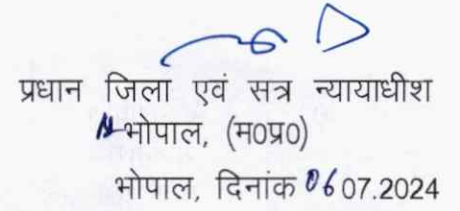 प्रधान जिला एवं सत्र न्यायाधीश
भोपाल, (म0प्र0)
भोपाल, दिनांक 06 07.2024